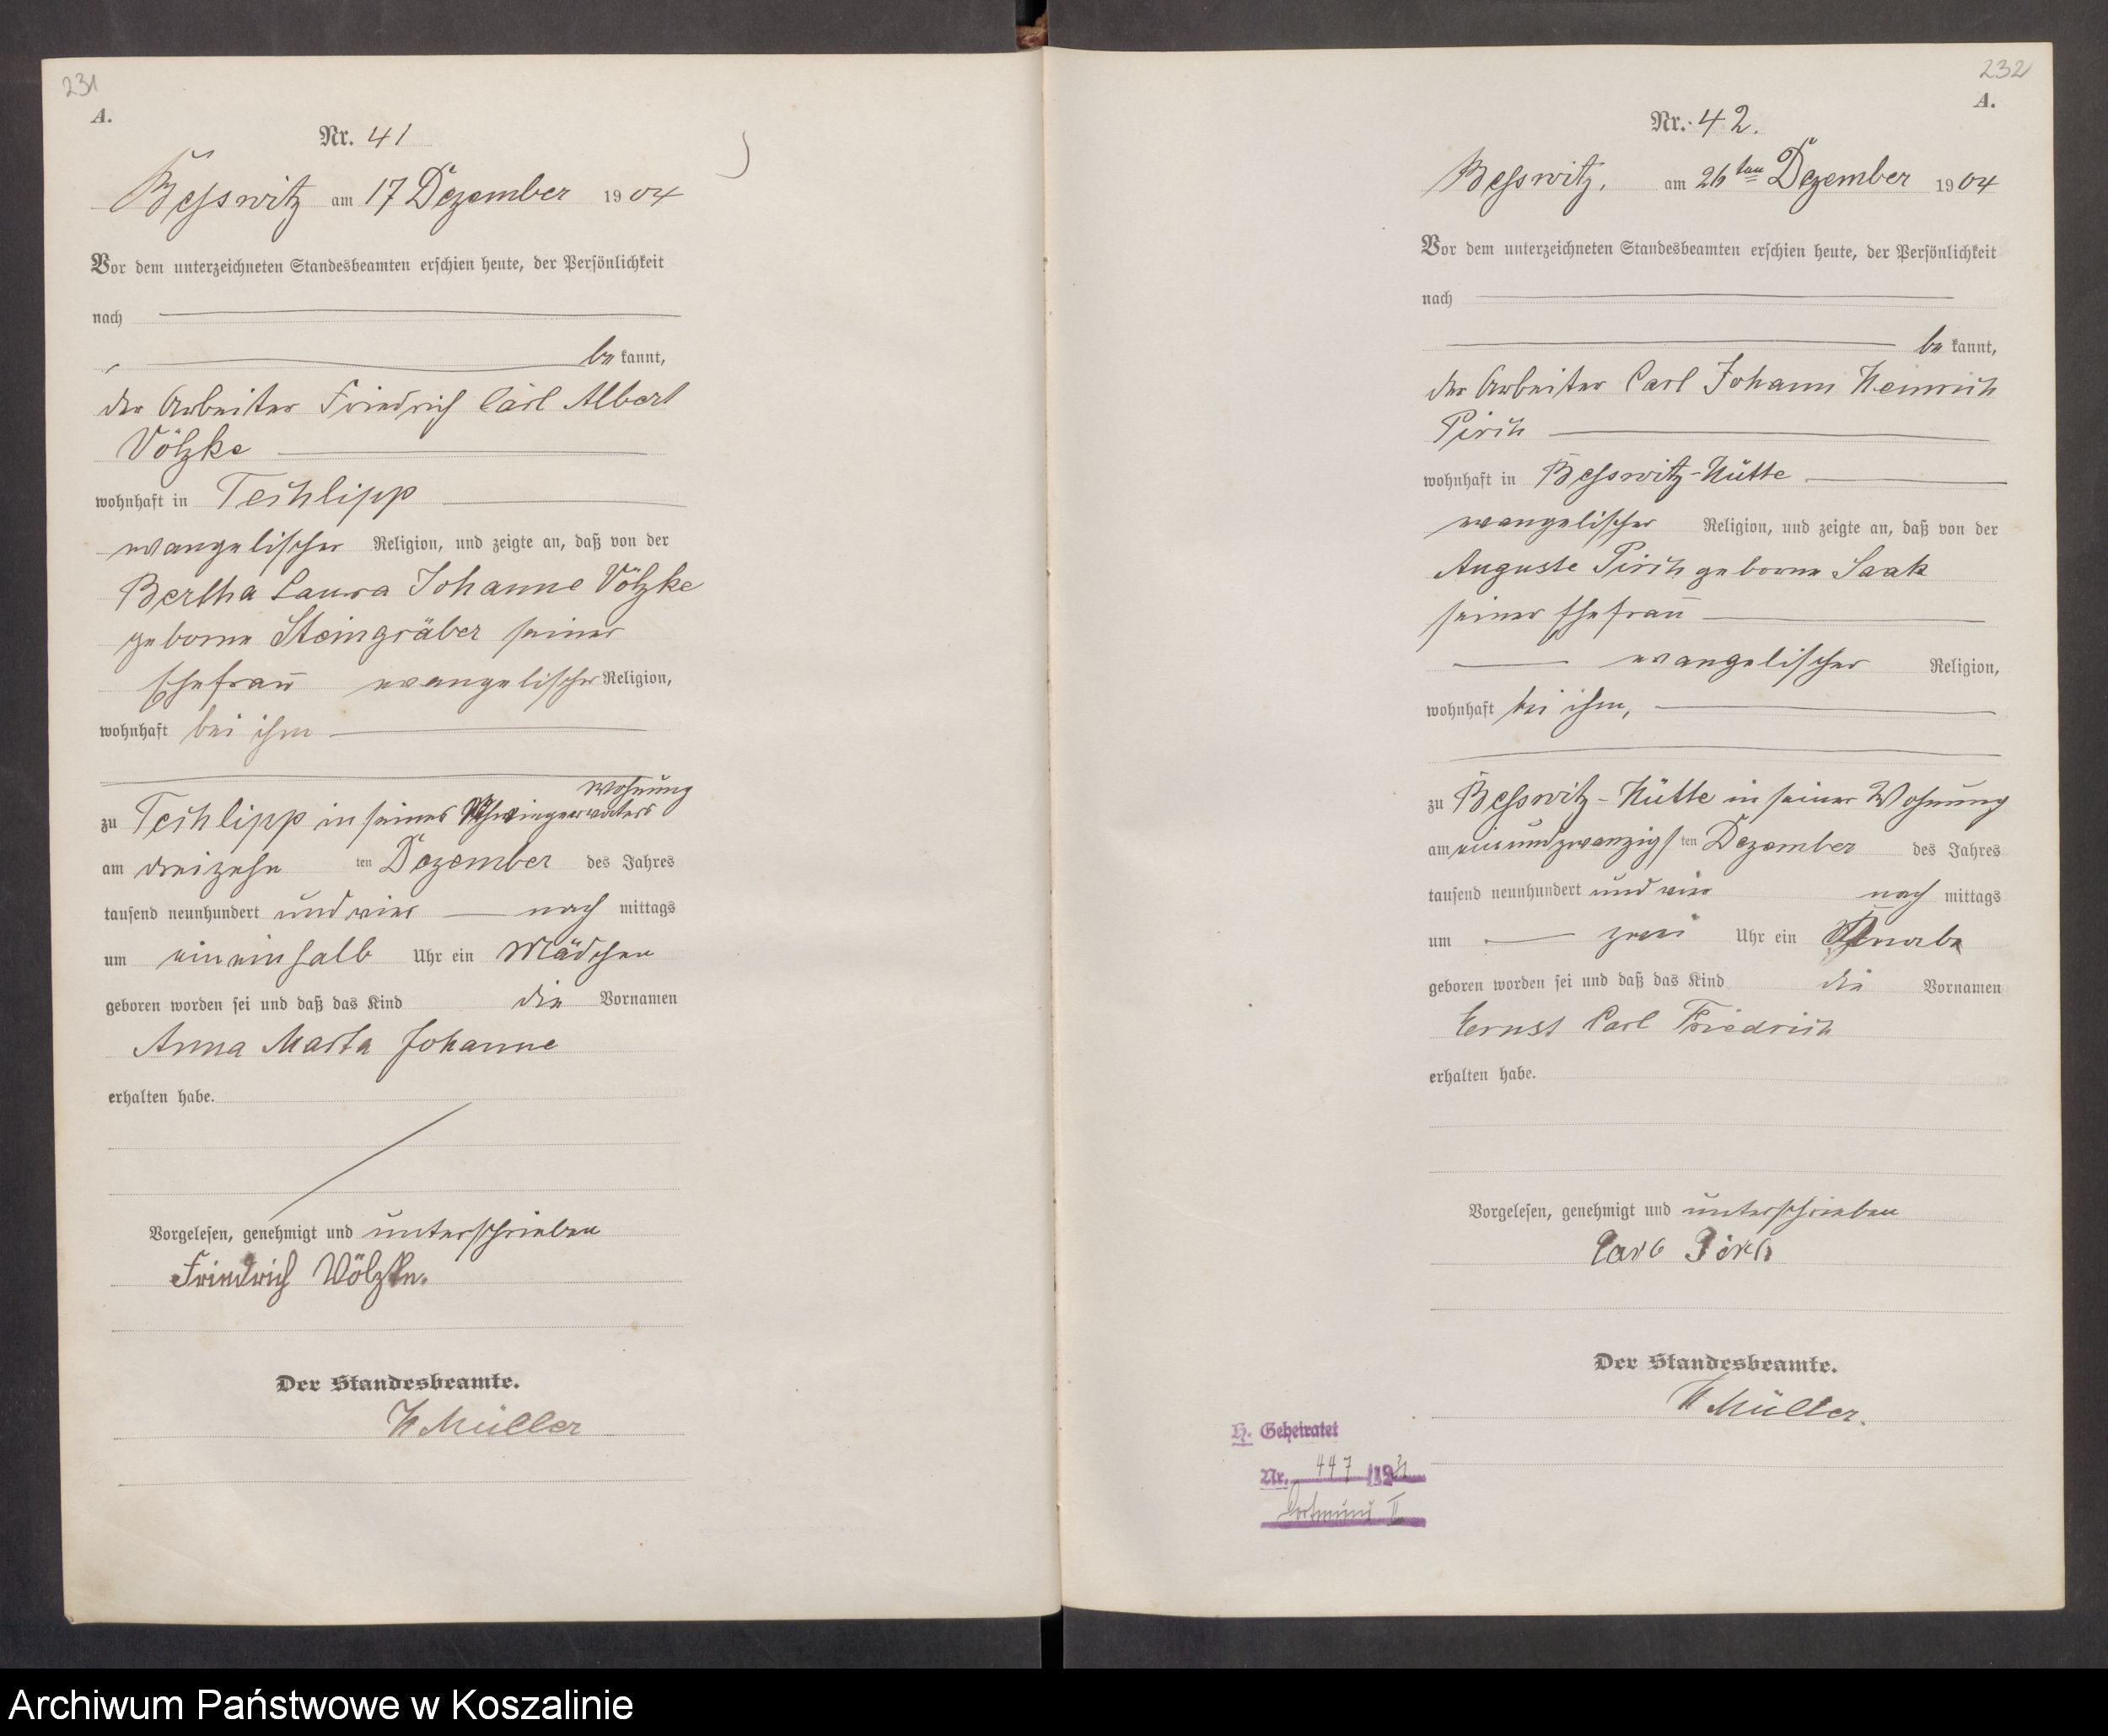 231
A.
Nr. 41
Besswitz am 17 Dezember 1904
Vor dem unterzeichneten Standesbeamten erschien heute, der Persönlichkeit
nach
be kannt,
der Arbeiter Friedrich Carl Albert
Völzke
wohnhaft in Techlipp
evangelischer Religion, und zeigte an, daß von der
Bertha Laura Johanne Völzke
geborne Steingräber seiner
Ehefrau evangelischer Religion,
wohnhaft bei ihm
Wohnung
zu Techlipp in seines Schwiegervaters
am dreizehn ten Dezember des Jahres
tausend neunhundert und vier nach mittags
um ein einhalb Uhr ein Mädchen
geboren worden sei und daß das Kind die Vornamen
Anna Marta Johanne
erhalten habe.
Vorgelesen, genehmigt und unterschrieben
Friedrich Völzke.
Der Standesbeamte.
H Müller
232
A.
Nr. 42.
Besswitz, am 26ten Dezember 1904
Vor dem unterzeichneten Standesbeamten erschien heute, der Persönlichkeit
nach
be kannt,
der Arbeiter Carl Johann Heinrich
Pirch
wohnhaft in Besswitz-Hütte
evangelischer Religion, und zeigte an, daß von der
Auguste Pirch geborne Saak
seiner Ehefrau
evangelischer Religion,
wohnhaft bei ihm,
zu Besswitz-Hütte in seiner Wohnung
am einundzwanzigsten Dezember des Jahres
tausend neunhundert und vier nach mittags
um zwei Uhr ein Knabe
geboren worden sei und daß das Kind die Vornamen
Ernst Carl Friedrich
erhalten habe.
Vorgelesen, genehmigt und unterschrieben
Carl Pirch
Der Standesbeamte.
H Müller.
H. Geheiratet
Nr. 447
Dortmund II
Archiwum Państwowe w Koszalinie